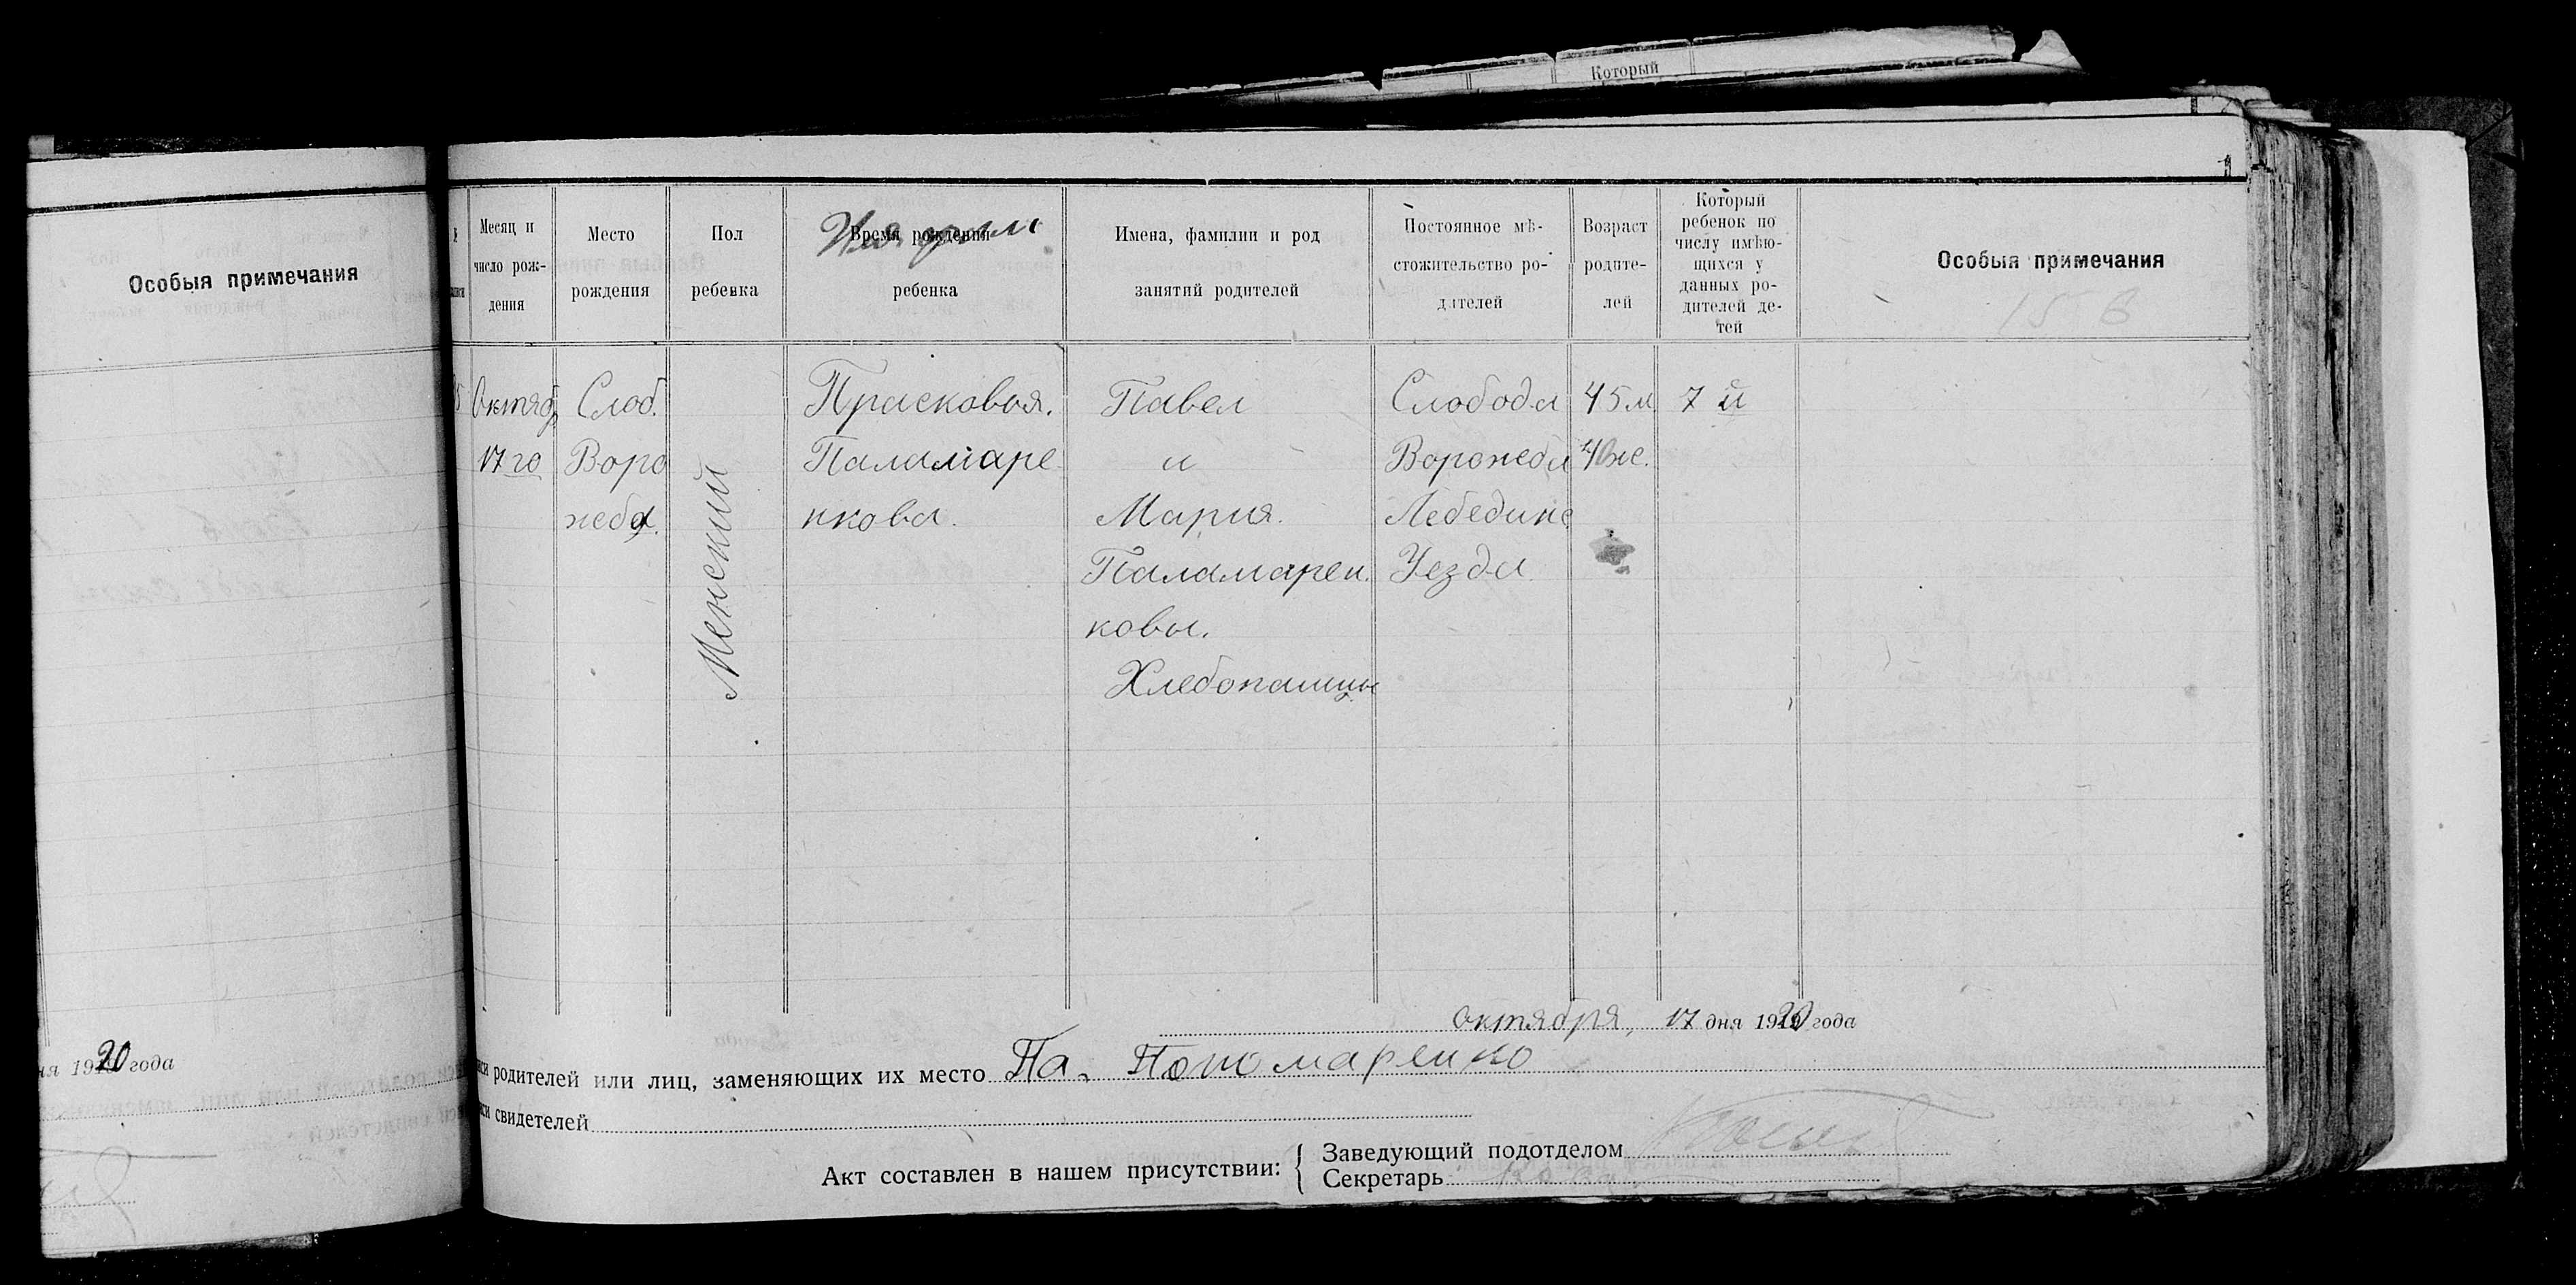 Который
Особыя примечания
Месяц и
число рож-
дения
Место
рождения
Пол
ребенка
Время рождения
ребенка
Имена, фамилии и род
занятий родителей
Постоянное мѣ-
стожительство ро-
дителей
Возраст
родите-
лей
Который
ребенок по
числу имѣю-
щихся у
данных ро-
дителей де-
тей
Особыя примечания
Октяб.
17го
Слоб.
Воро
жеба.
Женский
Прасковья.
Паламаре
нкова.
Павел
и
Мария.
Паламарен.
ковы.
Хлебопашцы
Слобода
Ворожеба
Лебединс
Уезда
45 м
40 же.
7 й
1920 года
октября, 17 дня 1920 года
родителей или лиц, заменяющих их место Па. Пономаренко
свидетелей
Акт составлен в нашем присутствии:
Заведующий подотделом
Секретарь